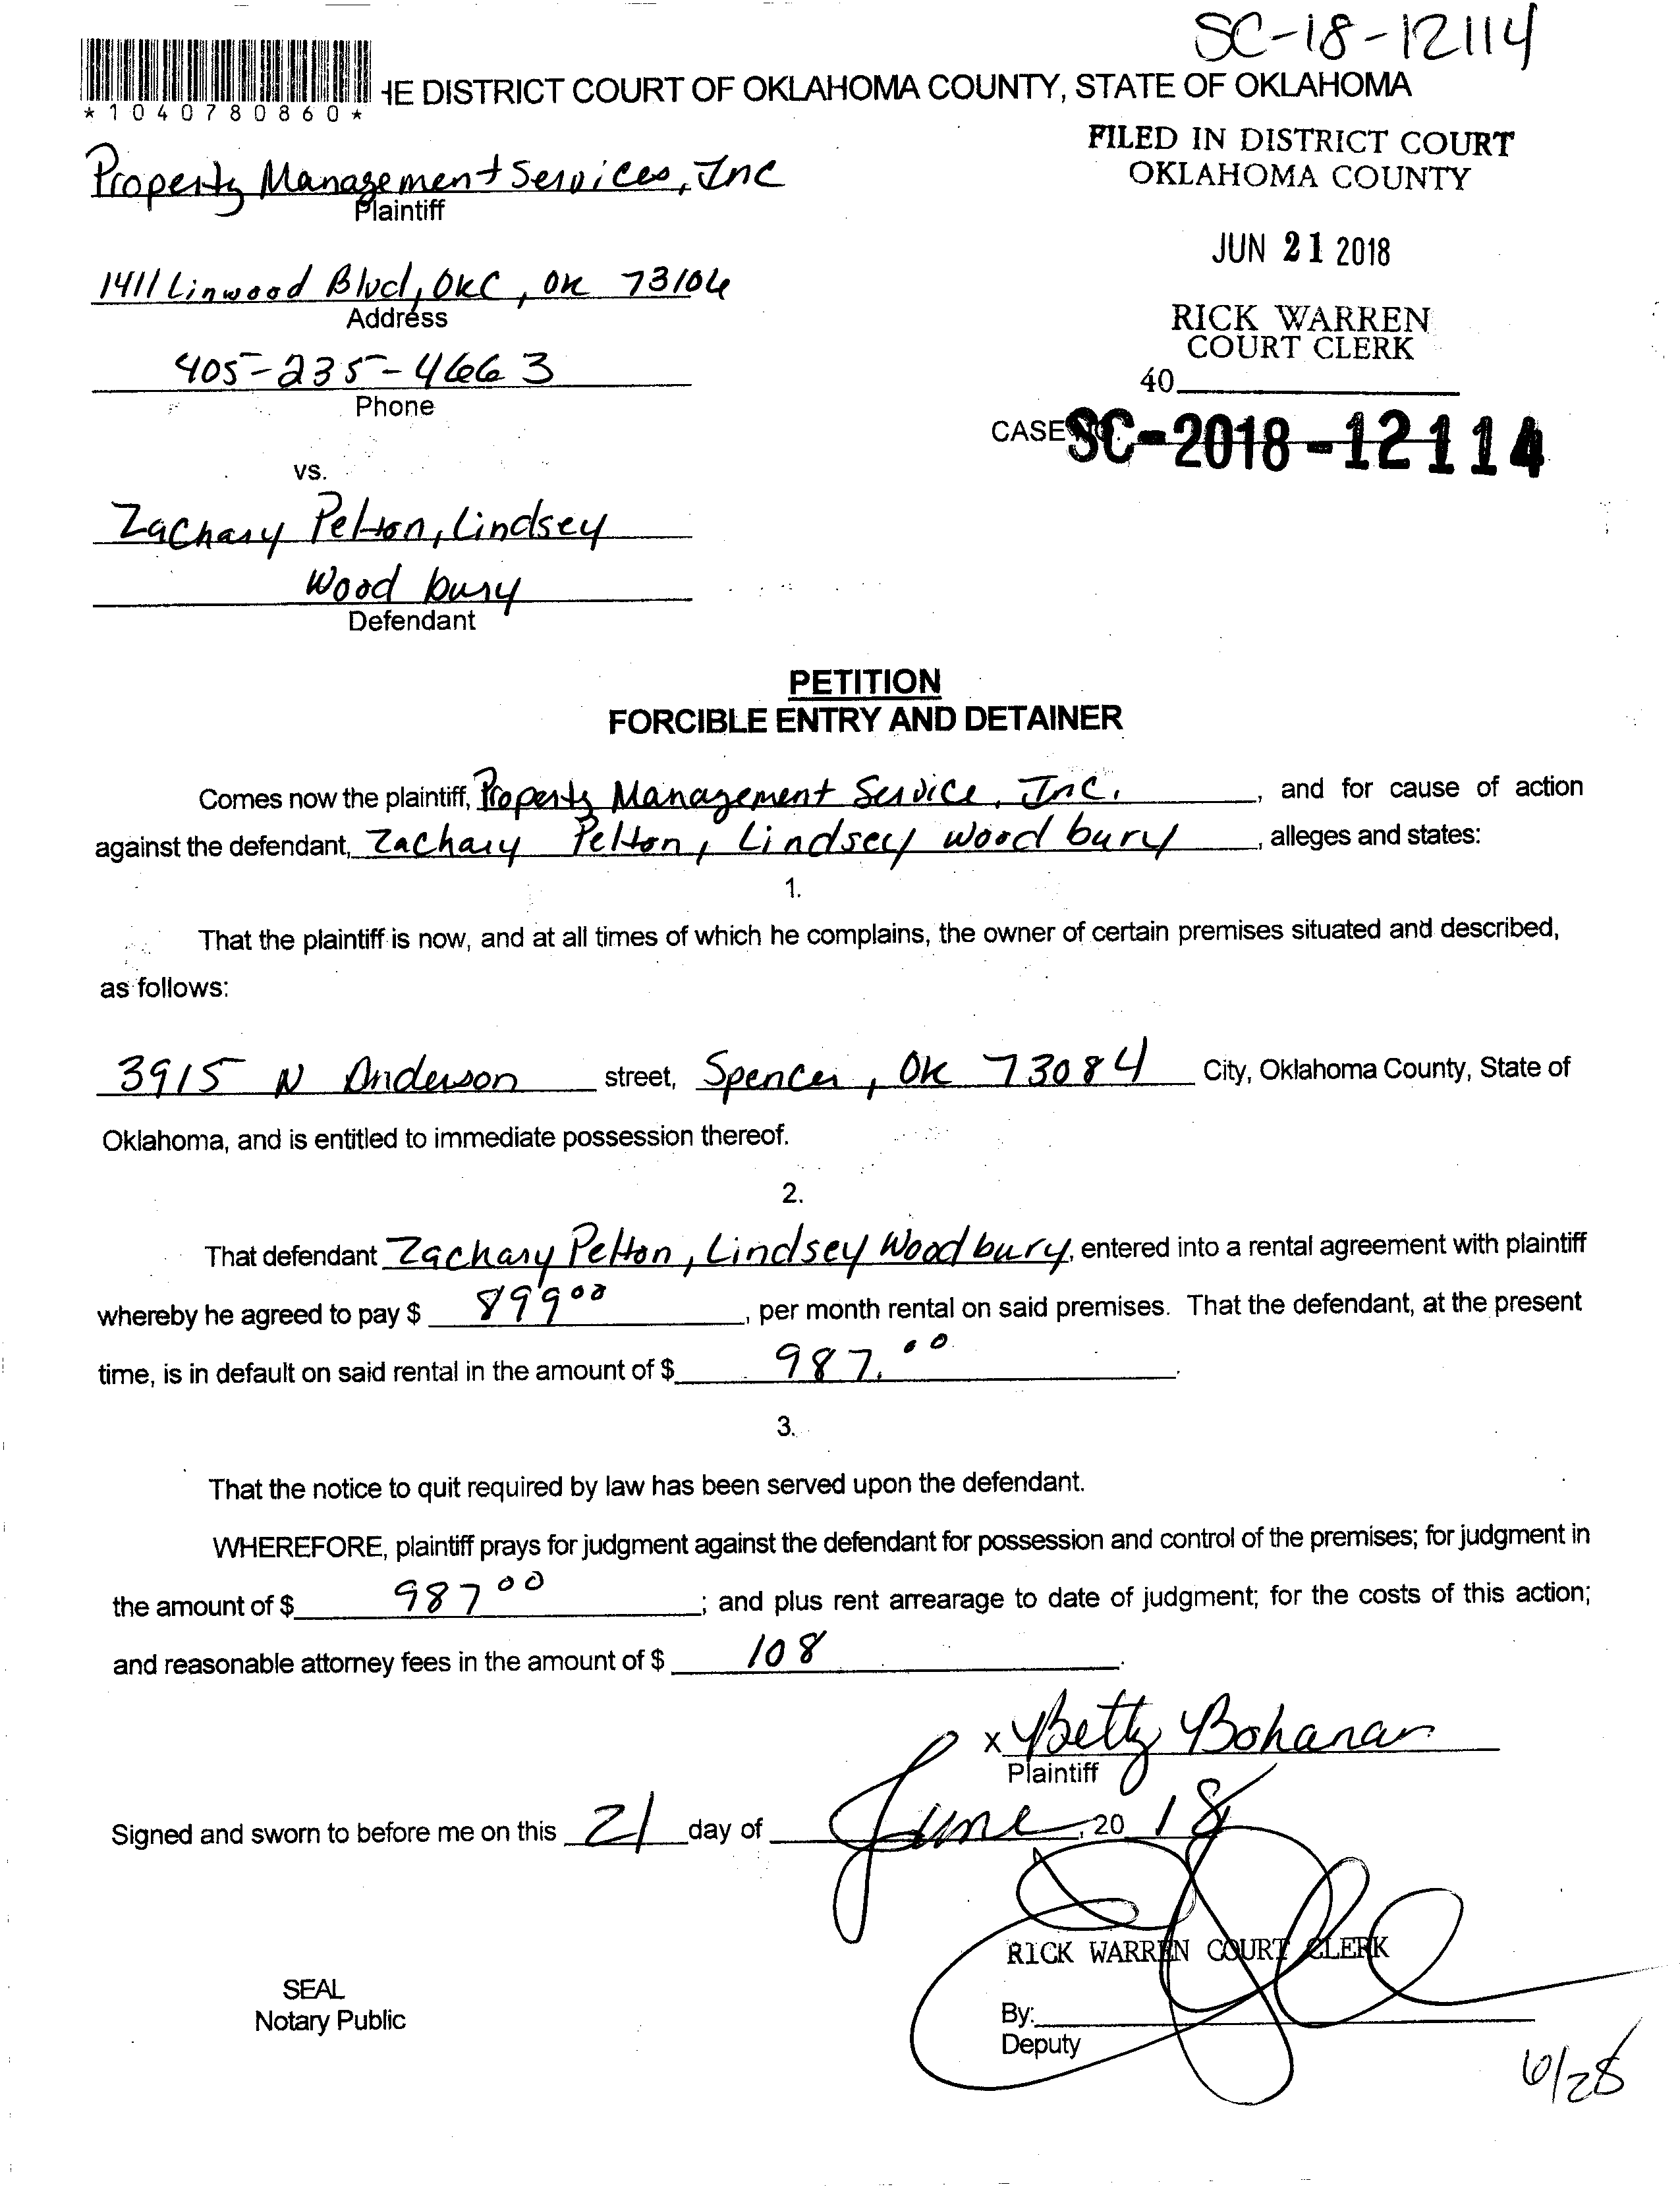 SC-18-12114
HE DISTRICT COURT OF OKLAHOMA COUNTY, STATE OF OKLAHOMA
*1040780860*
FILED IN DISTRICT COURT
OKLAHOMA COUNTY
Property Management Services, Inc
Plaintiff
JUN 21 2018
1411 Linwood Blvd, OKC, OK 73106
Address
RICK WARREN
COURT CLERK
405-235-4663
40
Phone
CASE SC-2018-12114
vs.
Zachary Pelton, Lindsey
Wood bury
Defendant
PETITION
FORCIBLE ENTRY AND DETAINER
Comes now the plaintiff, Property Management Service, Inc. , and for cause of action
against the defendant, Zachary Pelton, Lindsey Wood bury , alleges and states:
1.
That the plaintiff is now, and at all times of which he complains, the owner of certain premises situated and described,
as follows:
3915 N Anderson street, Spencer, OK 73084 City, Oklahoma County, State of
Oklahoma, and is entitled to immediate possession thereof.
2.
That defendant Zachary Pelton, Lindsey Wood bury, entered into a rental agreement with plaintiff
whereby he agreed to pay $ 899 00 , per month rental on said premises. That the defendant, at the present
time, is in default on said rental in the amount of $ 987.00 .
3.
That the notice to quit required by law has been served upon the defendant.
WHEREFORE, plaintiff prays for judgment against the defendant for possession and control of the premises; for judgment in
the amount of $ 987 00 ; and plus rent arrearage to date of judgment; for the costs of this action;
and reasonable attorney fees in the amount of $ 108 .
x Betty Bohanan
Plaintiff
Signed and sworn to before me on this 21 day of June, 20 18
RICK WARREN COURT CLERK
SEAL
Notary Public
By:
Deputy
6/28